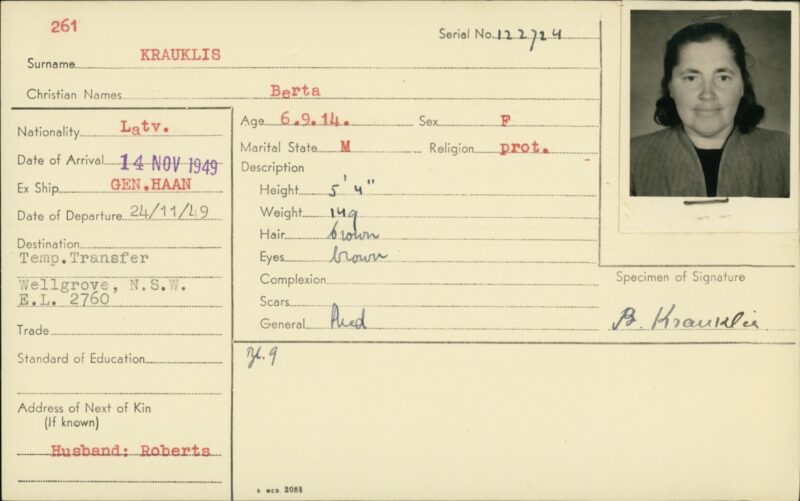 261
Serial No. 122724
Surname KRAUKLIS
Christian Names Berta
Nationality Latv.
Date of Arrival 14 NOV 1949
Ex Ship GEN.HAAN
Date of Departure 24/11/49
Destination
Temp.Transfer
Wellgrove, N.S.W.
E.L. 2760
Trade
Standard of Education
Address of Next of Kin
(If known)
Husband: Roberts
Age 6.9.14. Sex F
Marital State M Religion prot.
Description
Height 5' 4"
Weight 149
Hair brown
Eyes brown
Complexion
Scars
General
Specimen of Signature
B. Krauklis